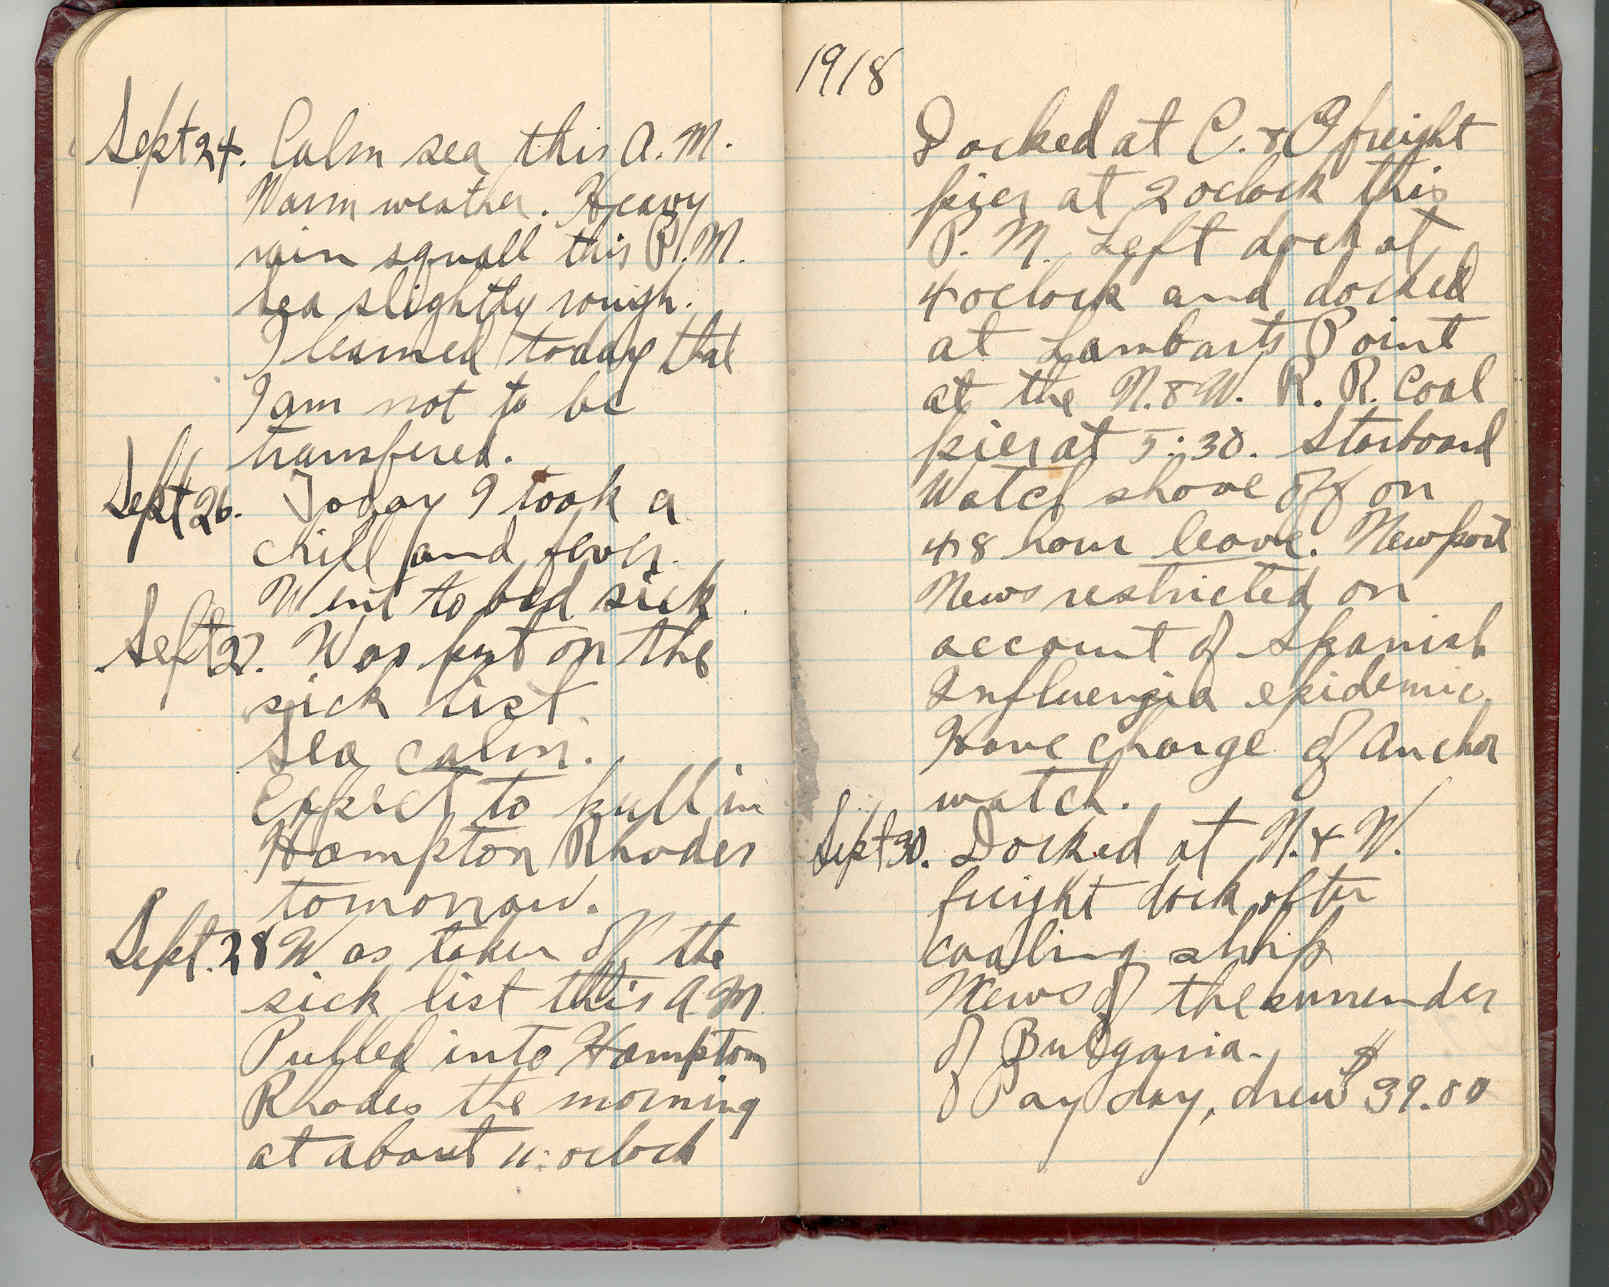 Sept 24. Calm sea this A.M.
Warm weather. Heavy
rain squall this P.M.
Sea slightly rough.
I learned today that
I am not to be
transfered.
Sept 26. Today I took a
chill and fever.
Went to bed sick.
Sept 27. Was put on the
sick list.
Sea calm.
Expect to pull in
Hampton Rhodes
tomorrow.
Sept. 28 Was taken off the
sick list this A M
Pulled into Hampton
Rhodes the morning
at about 11: oclock
1918
Docked at C. & O freight
pier at 2 oclock this
P. M. Left dock at
4 oclock and docked
at Lambarts Point
at the N. & W. R. R. Coal
pier at 5:30. Starboard
Watch shove off on
48 hour leave. Newport
News restricted on
account of Spanish
Influenzia epidemic.
Have charge of Anchor
watch.
Sept 30. Docked at N. & W.
freight dock after
coaling ship
News of the surrender
of Bulgaria.
Pay day, drew $39.80